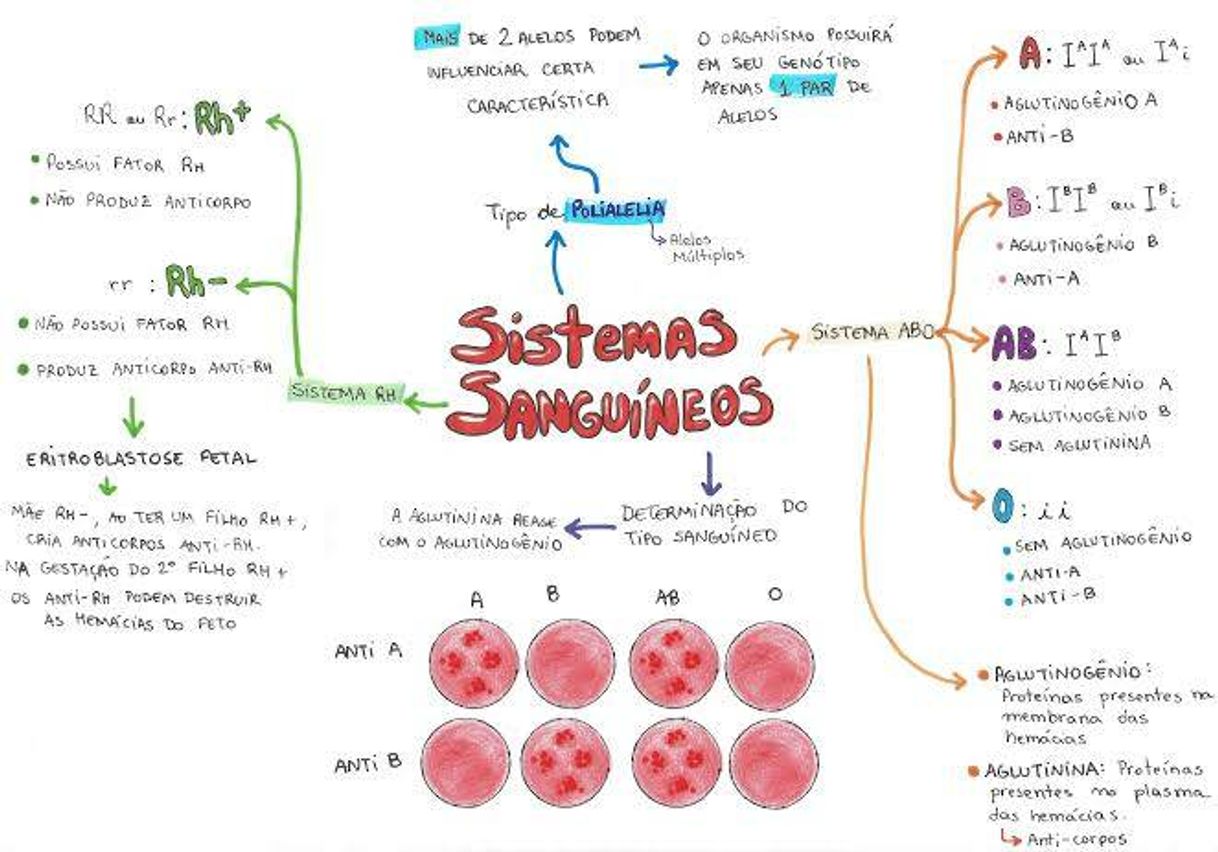 Sistemas
Sanguíneos
Tipo de Polialelia
Alelos
Múltiplos
Mais de 2 alelos podem
influenciar certa
característica
O organismo possuirá
em seu genótipo
apenas 1 par de
alelos
Sistema ABO
A: IᴬIᴬ ou Iᴬi
Aglutinogênio A
Anti-B
B: IᴮIᴮ ou Iᴮi
Aglutinogênio B
Anti-A
AB: IᴬIᴮ
Aglutinogênio A
Aglutinogênio B
Sem aglutinina
O: ii
Sem aglutinogênio
Anti-A
Anti-B
Aglutinogênio:
Proteínas presentes na
membrana das
hemácias
Aglutinina: Proteínas
presentes no plasma
das hemácias.
Anti-corpos
Determinação do
tipo sanguíneo
A aglutinina reage
com o aglutinogênio
A B AB O
Anti A
Anti B
Sistema RH
RR ou Rr: Rh+
Possui fator RH
Não produz anticorpo
rr : Rh-
Não possui fator RH
Produz anticorpo anti-RH
Eritroblastose fetal
Mãe RH-, ao ter um filho RH+,
cria anticorpos anti-RH.
Na gestação do 2º filho RH+
os anti-RH podem destruir
as hemácias do feto